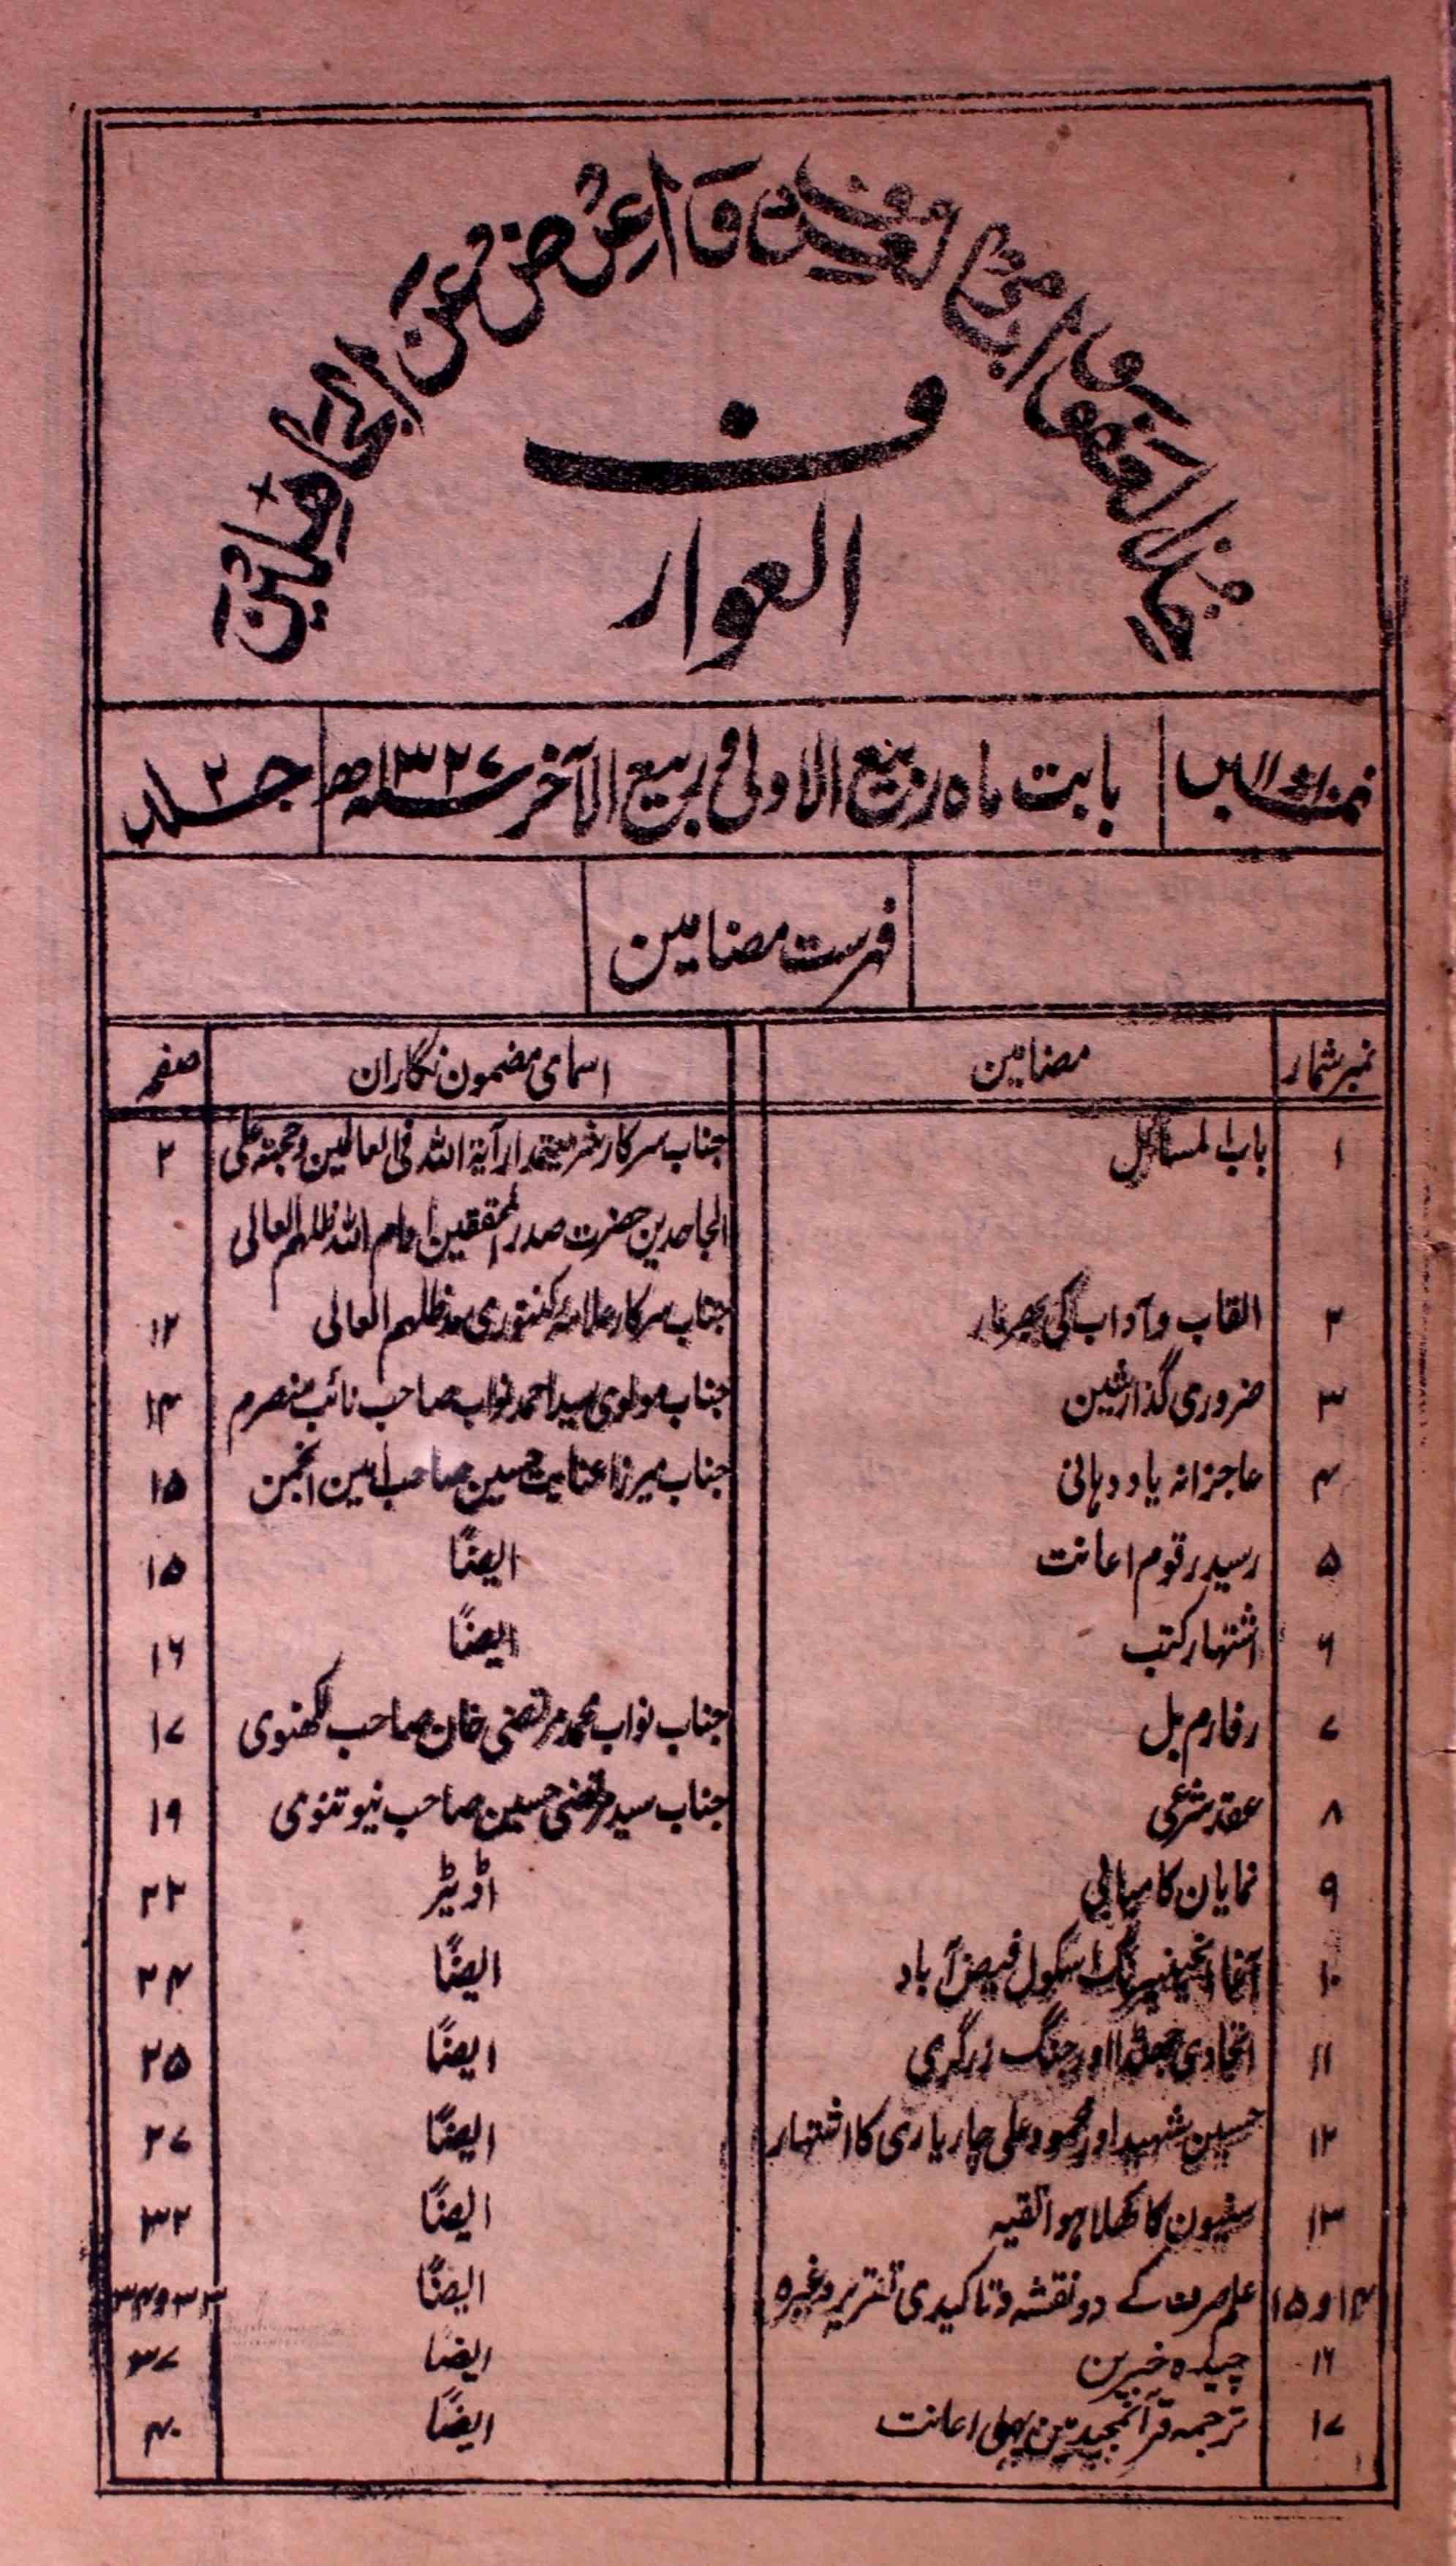 خذ العفو وأمر بالمعروف وَأَعْرِضْ عَنِ الْجَاهِلِينَ
العوارف
نمبر ۱۱ و ۱۲ بابت ماہ ربیع الاولی و ربیع الآخر ۱۳۲۷ھ جلد ۲
فہرست مضامین
نمبر شمار مضامین اسمای مضمون نگاران صفحہ
۱ باب المسائل جناب سرکار شریعتمدار آیۃ اللہ فی العالمین وحجتہ علی ۲
الجاحدین حضرت صدر المحققین ادام اللہ ظلہم العالی
۲ القاب و آداب کی بھرمار جناب سرکار علامہ کنتوری مدظلہم العالی ۱۲
۳ ضروری گذارشین جناب مولوی سید احمد نواب صاحب نائب منصرم ۱۴
۴ عاجزانہ یاد دہانی جناب میرزا عنایت حسین صاحب امین انجمن ۱۵
۵ رسید رقوم اعانت ایضاً ۱۵
۶ اشتہار کتب ایضاً ۱۶
۷ رفارم بل جناب نواب محمد مرتضی خان صاحب لکھنوی ۱۷
۸ عقد شرعی جناب سید مرتضی حسین صاحب نیوتنوی ۱۹
۹ نمایان کامیابی اڈیٹر ۲۲
۱۰ آغا انجینیرنگ اسکول فیض آباد ایضاً ۲۴
۱۱ اتحادی جھنڈا اور جنگ زرگری ایضاً ۲۵
۱۲ حسین شہید اور محمود علی چاریاری کا اشتہار ایضاً ۲۷
۱۳ سنیون کا کھلا ہوا تقیہ ایضاً ۳۲
۱۴ و ۱۵ علم صرف کے دو نقشہ و تاکیدی تقریر وغیرہ ایضاً ۳۳ و ۳۴
۱۶ چیدہ خبرین ایضاً ۳۷
۱۷ ترجمہ قرآنمجید مین پہلی اعانت ایضاً ۴۰